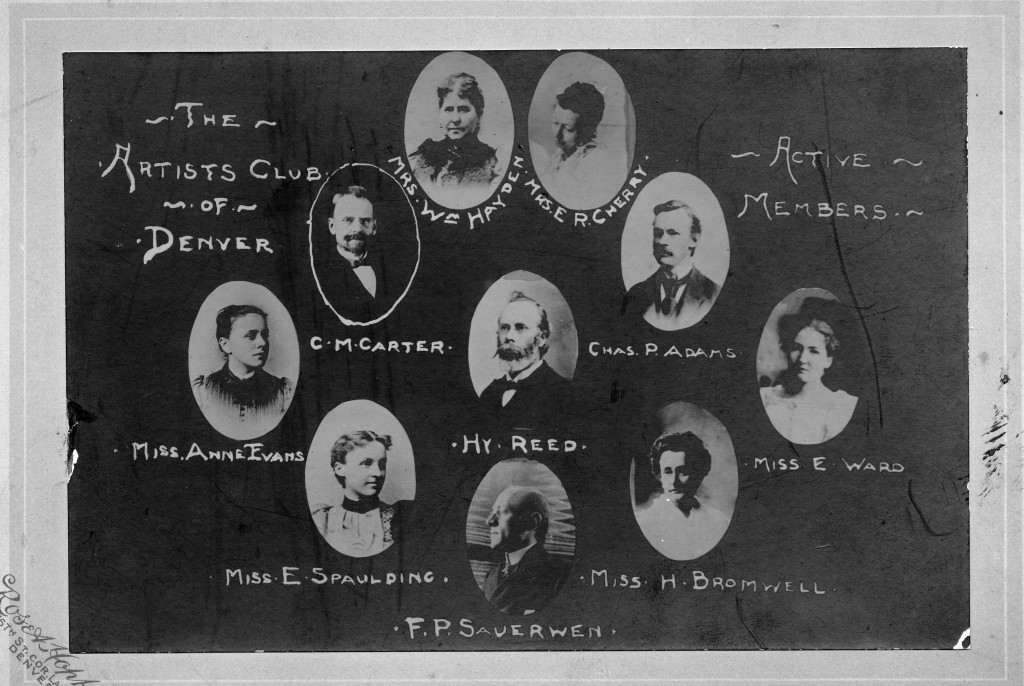 ~ THE ~
ARTISTS CLUB
~ OF ~
DENVER
~ ACTIVE ~
MEMBERS. ~
MRS. WM HAYDEN.
MRS. E R. CHERRY.
C. M. CARTER.
CHAS. P. ADAMS
MISS. ANNE EVANS
HY. REED.
MISS E WARD
MISS. E. SPAULDING.
MISS. H. BROMWELL.
F. P. SAUERWEN.
ROSE &
16TH ST. COR. LA
DENVE